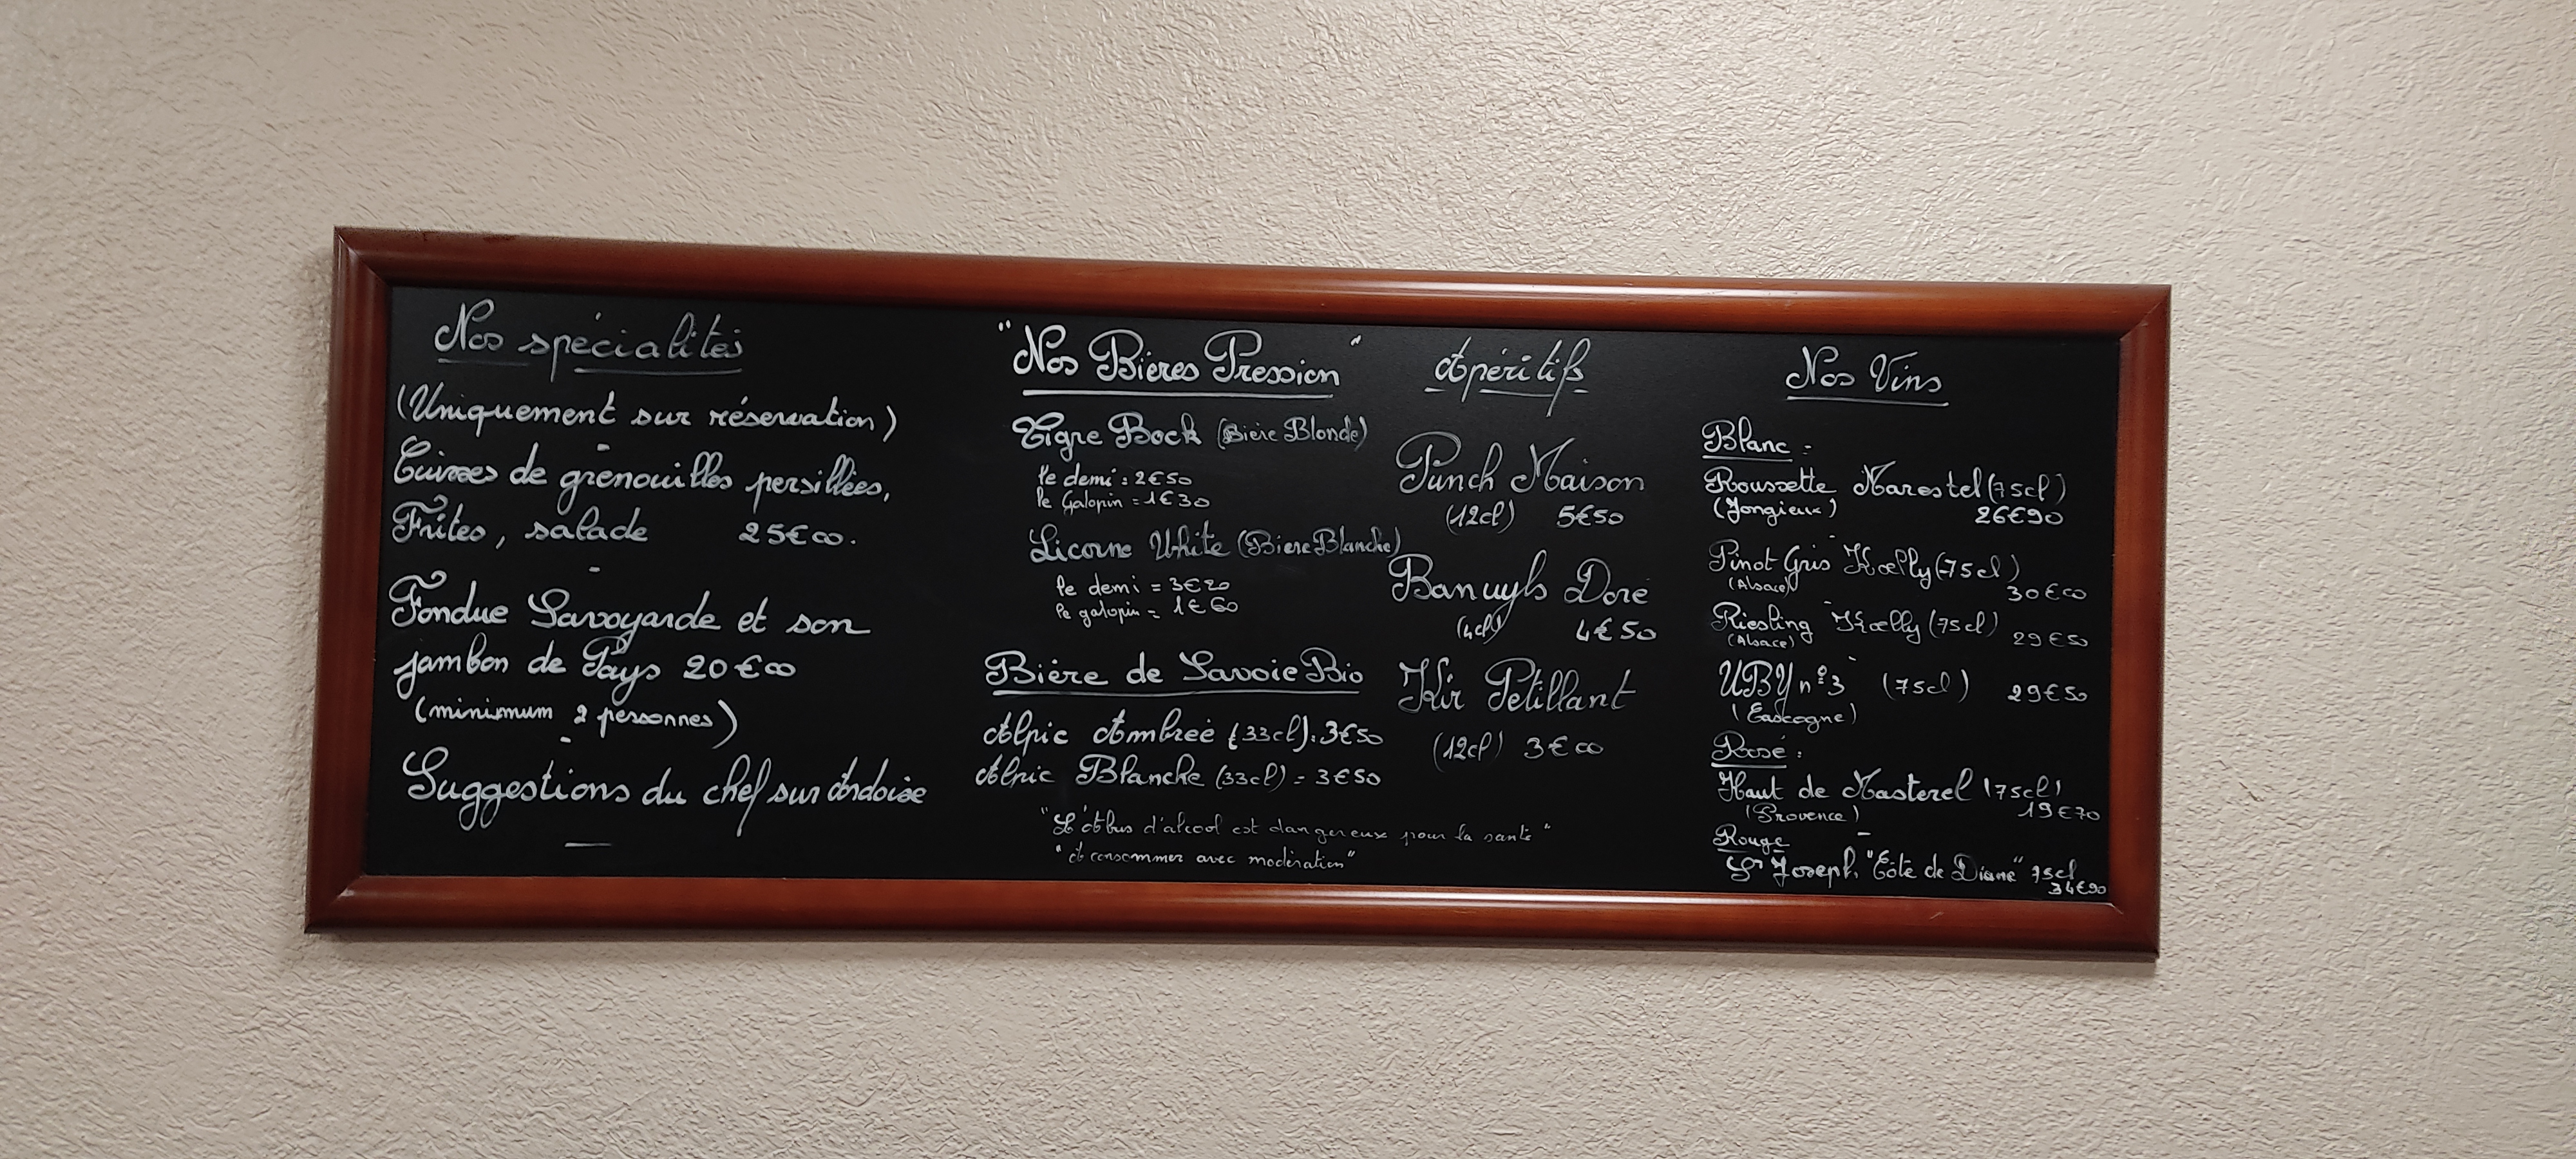 Nos spécialités
(Uniquement sur réservation)
Cuisses de grenouilles persillées,
Frites, salade 25€00.
Fondue Savoyarde et son
jambon de Pays 20€00
(minimum 2 personnes)
Suggestions du chef sur Ardoise
"Nos Bières Pression"
Tigre Bock (Bière Blonde)
le demi : 2€50
le Galopin = 1€30
Licorne White (Biere Blanche)
le demi = 3€20
le galopin = 1€60
Bière de Savoie Bio
Alpic Ambreé (33cl). 3€50
Alpic Blanche (33cl) = 3€50
"L'Abus d'alcool est dangereux pour la santé"
"A consommer avec modération"
Apéritifs
Punch Maison
(12cl) 5€50
Banuyls Doré
(4cl) 4€50
Kir Pétillant
(12cl) 3€00
Nos Vins
Blanc :
Roussette Marestel (75cl)
(Jongieux) 26€90
Pinot Gris Kœlly (75cl)
(Alsace) 30€00
Riesling Kœlly (75cl)
(Alsace) 29€50
UBY n°3 (75cl) 29€50
(Gascogne)
Rosé :
Haut de Masterel (75cl)
(Provence) 19€70
Rouge
St Joseph "Côte de Diane" 75cl
34€90